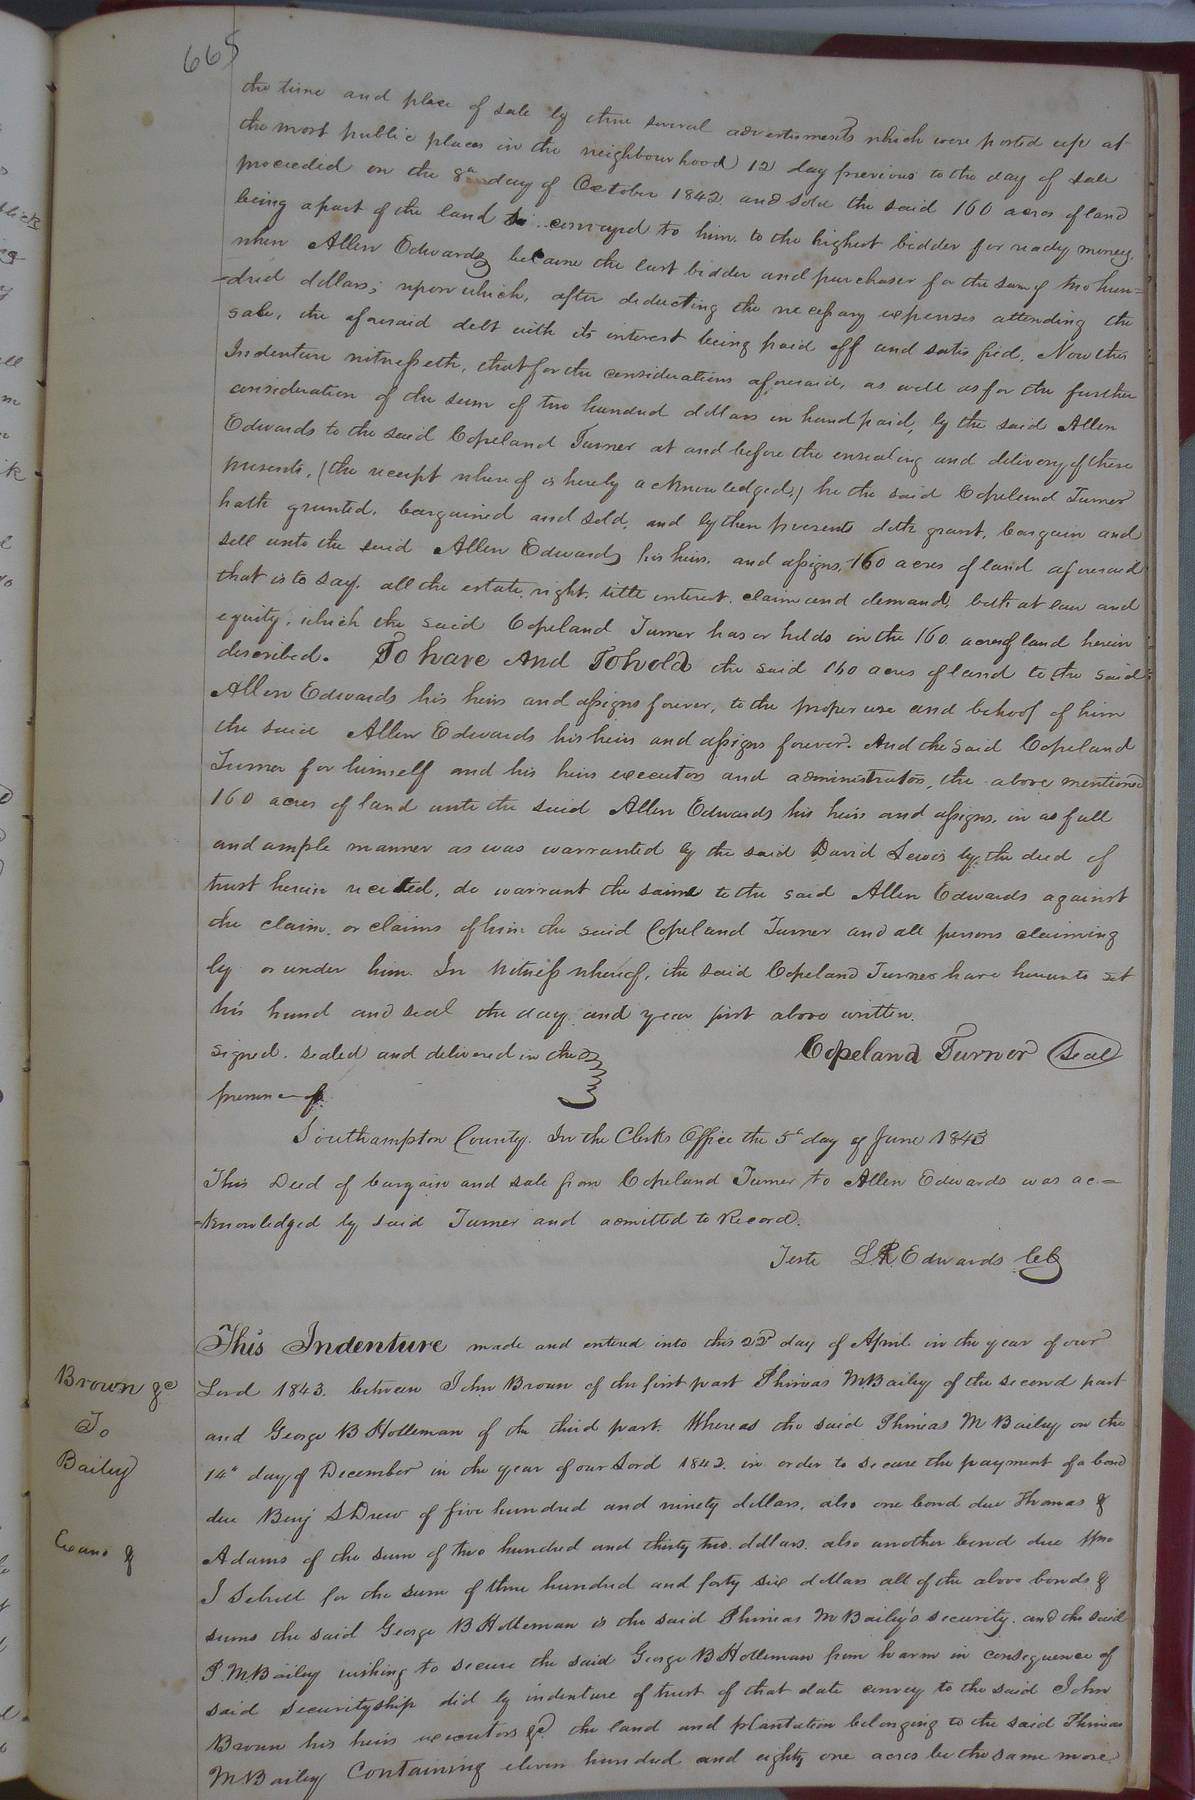 665
the time and place of sale by three several advertisments which were posted up at
the most public places in the neighbourhood 12 day previous to the day of sale
proceeded on the 8th day of October 1842 and sold the said 160 acres of land
being a part of the land so conveyed to him to the highest bidder for ready money,
when Allen Edwards became the last bidder and purchaser for the sum of two hun=
=dred dollars; upon which, after deducting the necessary expenses attending the
sale, the aforesaid debt with its interest being paid off and satisfied, Now this
Indenture witnesseth, that for the considerations aforesaid, as well as for the further
consideration of the sum of two hundred dollars in hand paid, by the said Allen
Edwards to the said Copeland Turner at and before the ensealing and delivery of these
presents, (the receipt whereof is hereby acknowledged,) he the said Copeland Turner
hath granted, bargained and sold, and by these presents doth grant, bargain and
sell unto the said Allen Edwards his heirs, and assigns, 160 acres of land aforesaid
that is to say, all the estate, right, title interest, claim and demand, both at law and
equity, which the said Copeland Turner has or holds in the 160 acres of land herein
described. To have And To hold the said 160 acres of land to the said
Allen Edwards his heirs and assigns forever, to the proper use and behoof of him
the said Allen Edwards his heirs and assigns forever. And the said Copeland
Turner for himself and his heirs executors and administrators, the above mentioned
160 acres of land unto the said Allen Edwards his heirs and assigns, in as full
and ample manner as was warranted by the said David Lewis by the deed of
trust herein recited, do warrant the same to the said Allen Edwards against
the claim, or claims of him the said Copeland Turner and all persons claiming
by or under him. In Witness whereof, the said Copeland Turner have hereunto set
his hand and seal the day and year first above written.
signed, sealed and delivered in the Copeland Turner (Seal)
presence of
Southampton County. In the Clerks Office the 5th day of June 1843
This Deed of bargain and sale from Copeland Turner to Allen Edwards was ac=
=knowledged by said Turner and admitted to Record.
Teste L R Edwards
This Indenture made and entered into this 22d day of April in the year of our
Brown &c
Lord 1843, between John Brown of the first part Phineas M Bailey of the second part
To
and George B Holleman of the third part. Whereas the said Phineas M Bailey on the
Bailey
14th day of December in the year of our Lord 1842, in order to secure the payment of a bond
due Benj S Drew of five hundred and ninety dollars, also one bond due Thomas &
Adams of the sum of two hundred and thirty two dollars, also another bond due Wm
J Sebrell for the sum of three hundred and forty six dollars all of the above bonds &
sums the said George B Holleman is the said Phineas M Bailey's security, and the said
P. M. Bailey wishing to secure the said George B Holleman from harm in consequence of
said securityship did by indenture of trust of that date convey to the said John
Brown his heirs executors &c the land and plantation belonging to the said Phineas
M Bailey Containing eleven hundred and eighty one acres be the same more